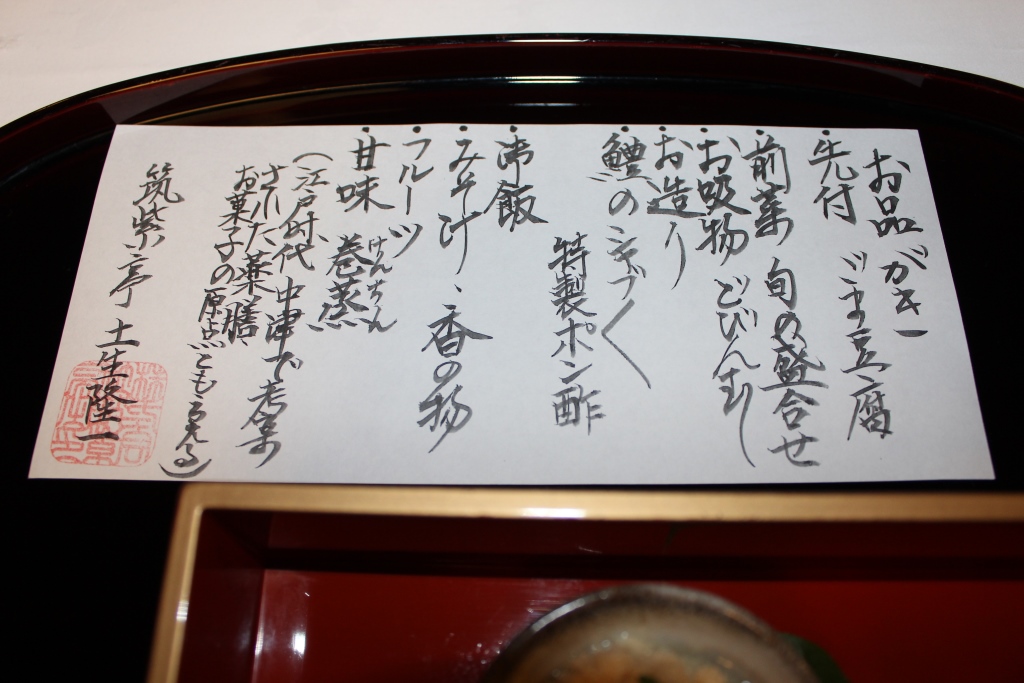 お品がき
・先付 ごま豆腐
・前菜 旬の盛合せ
・お吸物 どびんむし
・お造り
・鱧のしゃぶしゃぶ
特製ポン酢
・御飯
・みそ汁、香の物
・フルーツ
・甘味 巻蒸
けんちん
(江戸时代、中津で考案
された薬膳
お菓子の原点ごもろえる)
筑紫亭 土生隆一